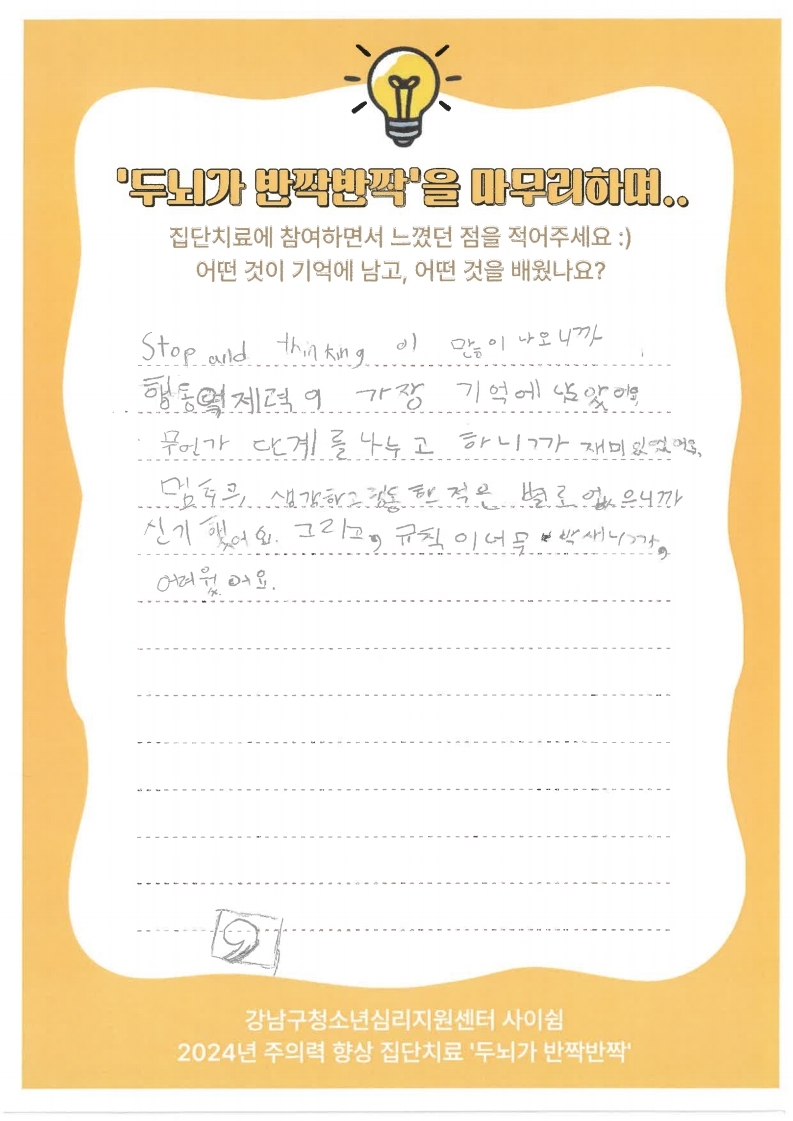 '두뇌가 반짝반짝'을 마무리하며..
집단치료에 참여하면서 느꼈던 점을 적어주세요 :)
어떤 것이 기억에 남고, 어떤 것을 배웠나요?
Stop and thinking 이 많이 나오니까
행동억제력이 가장 기억에 남았어요.
무언가 단계를 나누고 하니까 재미있었어요,
멈추고, 생각하고 행동한 적은 별로 없으니까
신기했어요. 그리고, 규칙이 너무 빡새니까,
어려웠어요.
강남구청소년심리지원센터 사이쉼
2024년 주의력 향상 집단치료 '두뇌가 반짝반짝'